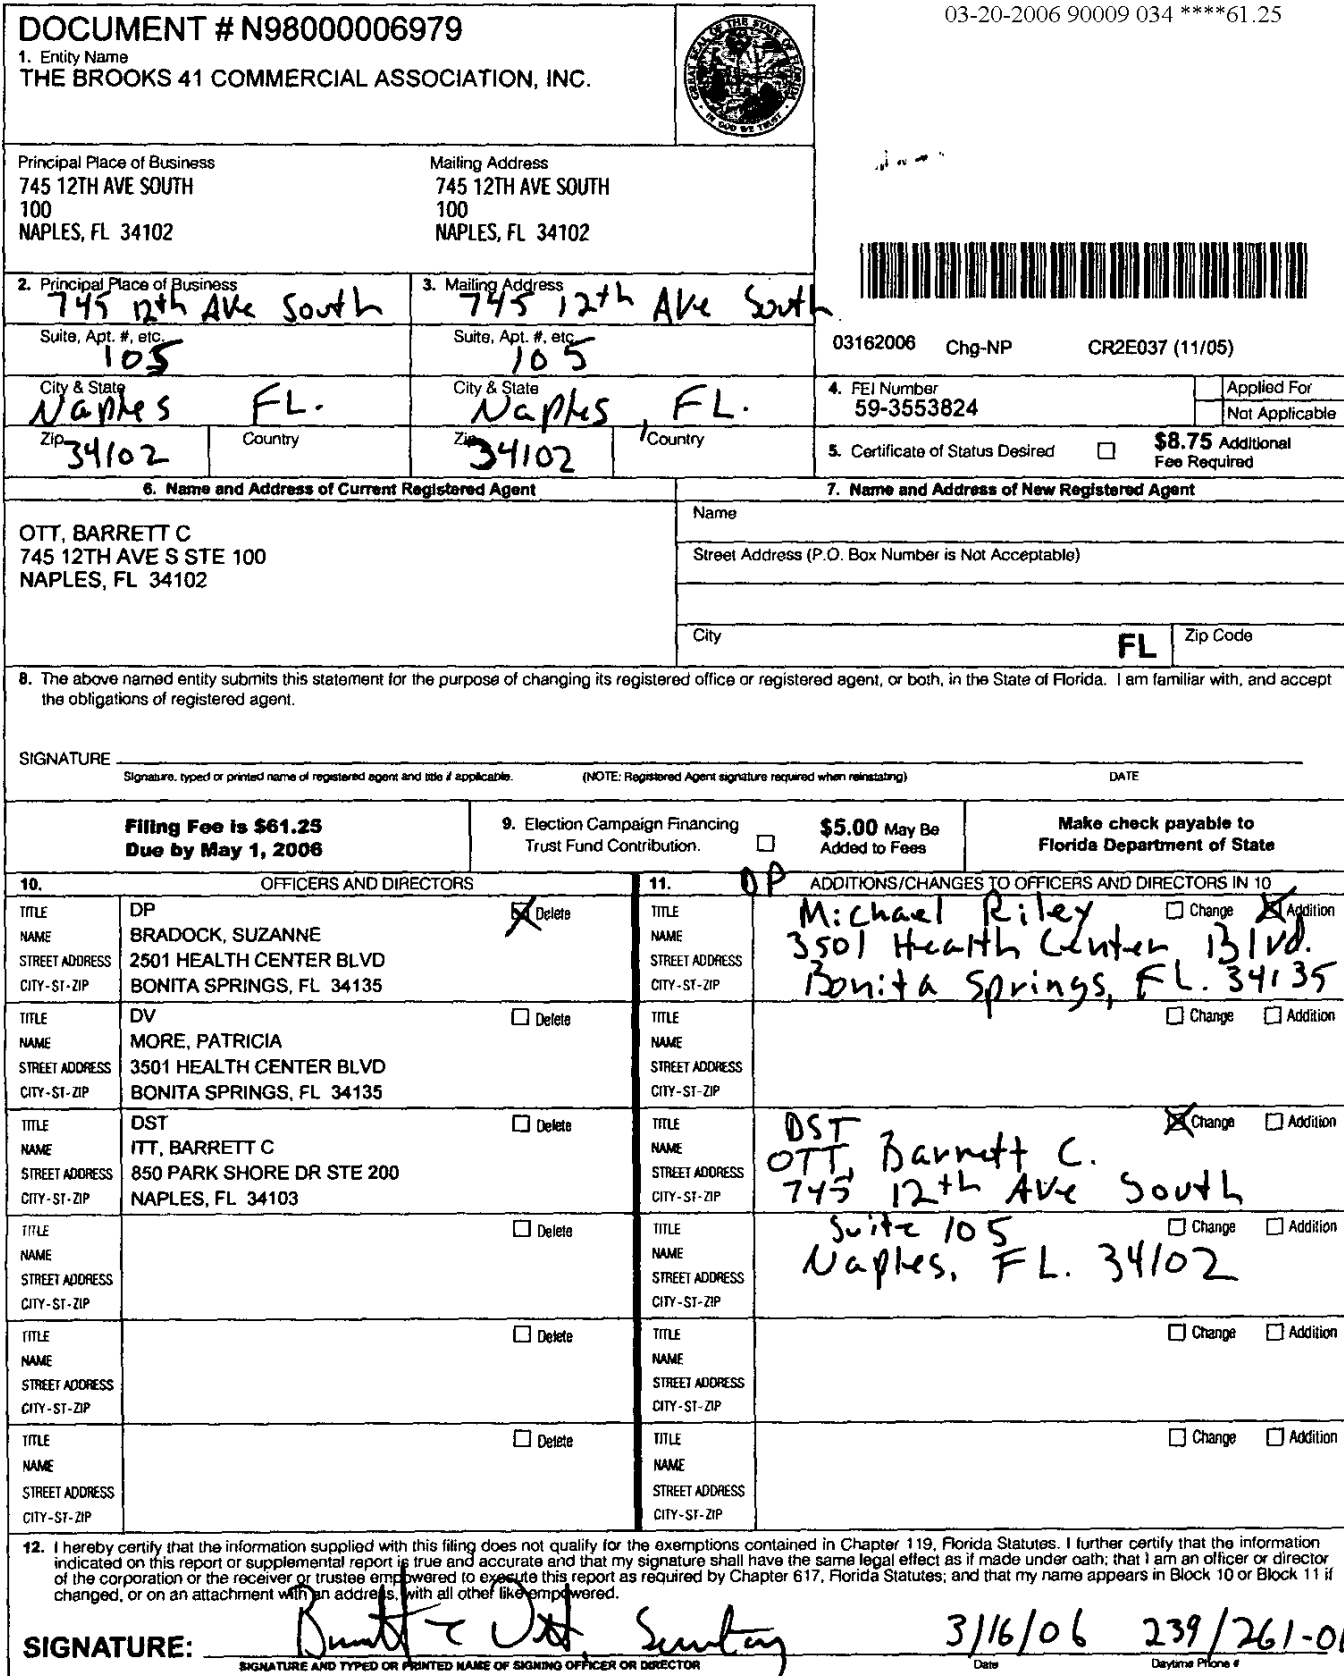 03-20-2006 90009 034 ****61.25
DOCUMENT # N98000006979
1. Entity Name
THE BROOKS 41 COMMERCIAL ASSOCIATION, INC.
GREAT SEAL OF THE STATE OF FLORIDA
IN GOD WE TRUST
Principal Place of Business
745 12TH AVE SOUTH
100
NAPLES, FL 34102
Mailing Address
745 12TH AVE SOUTH
100
NAPLES, FL 34102
2. Principal Place of Business
745 12th Ave South
Suite, Apt. #, etc.
105
City & State
Naples FL.
Zip
34102
Country
3. Mailing Address
745 12th Ave South
Suite, Apt. #, etc.
105
City & State
Naples, FL.
Zip
34102
Country
03162006 Chg-NP CR2E037 (11/05)
4. FEI Number
59-3553824
Applied For
Not Applicable
5. Certificate of Status Desired
$8.75 Additional
Fee Required
6. Name and Address of Current Registered Agent
OTT, BARRETT C
745 12TH AVE S STE 100
NAPLES, FL 34102
7. Name and Address of New Registered Agent
Name
Street Address (P.O. Box Number is Not Acceptable)
City
FL
Zip Code
8. The above named entity submits this statement for the purpose of changing its registered office or registered agent, or both, in the State of Florida. I am familiar with, and accept
the obligations of registered agent.
SIGNATURE
Signature, typed or printed name of registered agent and title if applicable. (NOTE: Registered Agent signature required when reinstating) DATE
Filing Fee is $61.25
Due by May 1, 2006
9. Election Campaign Financing
Trust Fund Contribution.
$5.00 May Be
Added to Fees
Make check payable to
Florida Department of State
10. OFFICERS AND DIRECTORS
TITLE DP Delete
NAME BRADOCK, SUZANNE
STREET ADDRESS 2501 HEALTH CENTER BLVD
CITY-ST-ZIP BONITA SPRINGS, FL 34135
TITLE DV Delete
NAME MORE, PATRICIA
STREET ADDRESS 3501 HEALTH CENTER BLVD
CITY-ST-ZIP BONITA SPRINGS, FL 34135
TITLE DST Delete
NAME ITT, BARRETT C
STREET ADDRESS 850 PARK SHORE DR STE 200
CITY-ST-ZIP NAPLES, FL 34103
TITLE Delete
NAME
STREET ADDRESS
CITY-ST-ZIP
TITLE Delete
NAME
STREET ADDRESS
CITY-ST-ZIP
TITLE Delete
NAME
STREET ADDRESS
CITY-ST-ZIP
11. DP ADDITIONS/CHANGES TO OFFICERS AND DIRECTORS IN 10
TITLE Michael Riley Change Addition
NAME 3501 Health Center Blvd.
STREET ADDRESS
CITY-ST-ZIP Bonita Springs, FL. 34135
TITLE Change Addition
NAME
STREET ADDRESS
CITY-ST-ZIP
TITLE DST Change Addition
NAME OTT, Barrett C.
STREET ADDRESS
CITY-ST-ZIP 745 12th Ave South
TITLE Suite 105 Change Addition
NAME Naples, FL. 34102
STREET ADDRESS
CITY-ST-ZIP
TITLE Change Addition
NAME
STREET ADDRESS
CITY-ST-ZIP
TITLE Change Addition
NAME
STREET ADDRESS
CITY-ST-ZIP
12. I hereby certify that the information supplied with this filing does not qualify for the exemptions contained in Chapter 119, Florida Statutes. I further certify that the information
indicated on this report or supplemental report is true and accurate and that my signature shall have the same legal effect as if made under oath; that I am an officer or director
of the corporation or the receiver or trustee empowered to execute this report as required by Chapter 617, Florida Statutes; and that my name appears in Block 10 or Block 11 if
changed, or on an attachment with an address, with all other like empowered.
SIGNATURE: Barrett C Ott, Secretary 3/16/06 239/261-01
SIGNATURE AND TYPED OR PRINTED NAME OF SIGNING OFFICER OR DIRECTOR Date Daytime Phone #